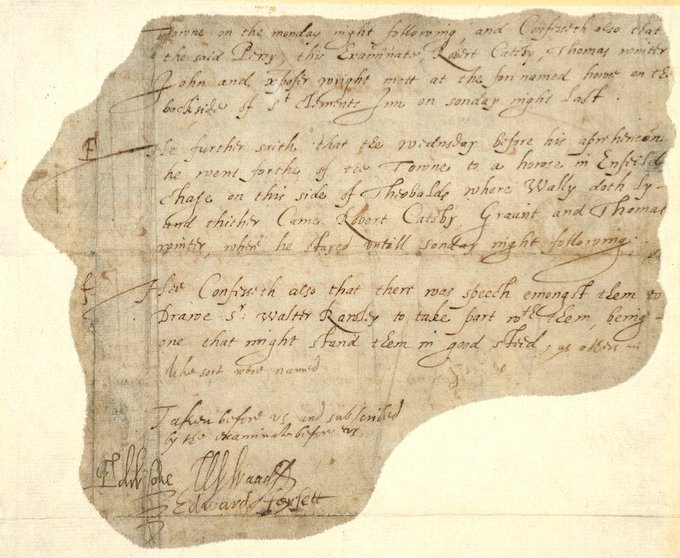 Towne on the monday night following, and Confesseth also that
the said Percy, this Examinate, Robert Catesby, Thomas winter
John and Xpofer wright mett at the forenamed howse on the
backside of St Clements Inn on sonday night last
F
He further saith that the wednsday before his aprehencon
he went forthe of the Towne to a howse in Enfeild
Chase on this side of Theobaldes where Wally doth ly
and thither Came Robert Catesby Graunt and Thomas
winter, where he stayed untill sonday night following.
f
Hee Confesseth also that there was speech emongst them to
Drawe Sr. Walter Rawley to take part wth them, being
one that might stand them in good steed, as others in
like sort were named
Taken before us and subscribed
by the examinate before us
Edw Coke W Waad
Edward Forsett